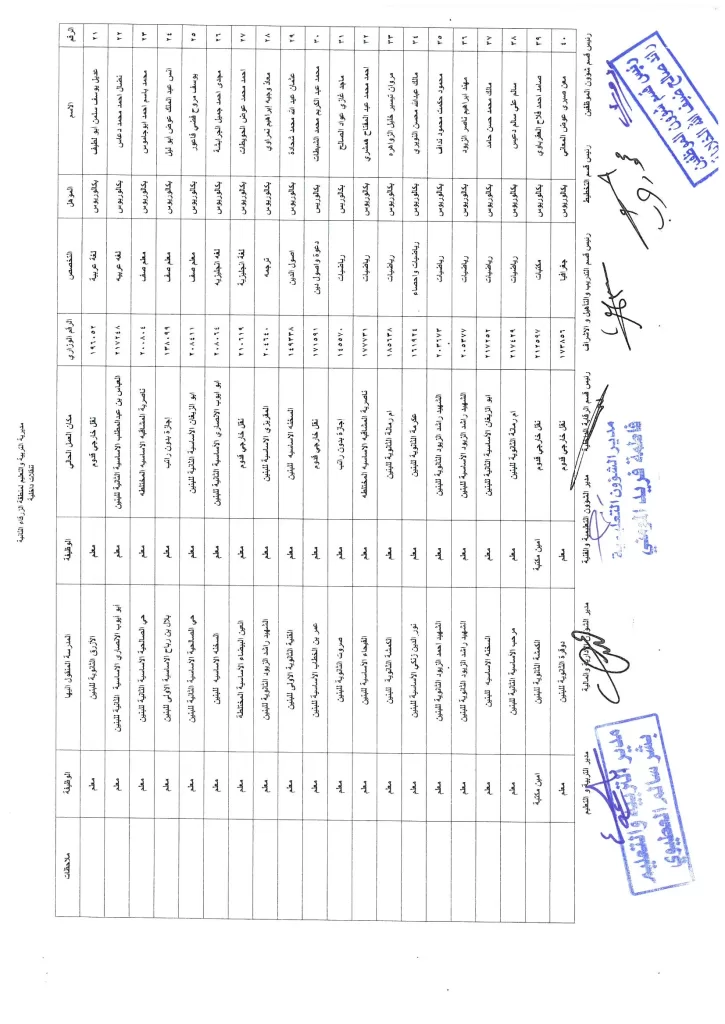 مديرية التربية والتعليم لمنطقة الزرقاء الثانية
تنقلات داخلية
الرقم الاسم المؤهل التخصص الرقم الوزاري مكان العمل الحالي الوظيفة المدرسة المنقول اليها الوظيفة ملاحظات
٢١ عديل يوسف سلمان ابو لطيف بكالوريوس لغة عربية ١٩٦٠٥٢ نقل خارجي قدوم معلم الأزرق الثانوية للبنين معلم
٢٢ نضال احمد محمد دعاس بكالوريوس لغه عربيه ٢١٧٢٤٨ العباس بن عبدالمطلب الاساسية الثانية للبنين معلم ابو ايوب الانصاري الاساسية الثانية للبنين معلم
٢٣ محمد باسم احمد ابوجاموس بكالوريوس معلم صف ٢٠٠٨٠٤ ناصرية المشاقبه الاساسيه المختلطه معلم حي الصالحية الاساسية الثانية للبنين معلم
٢٤ انس عبد الملك عوض ابو ليل بكالوريوس معلم صف ١٣٨٠٩٩ اجازة بدون راتب معلم بلال بن رباح الاساسية الاولى للبنين معلم
٢٥ يوسف مروح فضي فاعور بكالوريوس معلم صف ٢٠٨٤١١ ابو الزيغان الاساسية الثانية للبنين معلم حي الصالحية الاساسية الثانية للبنين معلم
٢٦ مجدي احمد جميل الجرابشة بكالوريوس لغه انجليزيه ٢٠٨٠٦٤ ابو ايوب الانصاري الاساسية الثانية للبنين معلم السخنه الاساسية للبنين معلم
٢٧ احمد محمد عوض الحويطات بكالوريوس لغة انجليزية ٢١٠٦١٩ نقل خارجي قدوم معلم العين البيضاء الاساسية المختلطة معلم
٢٨ معاذ وجيه ابراهيم نمراوي بكالوريوس ترجمه ٢٠٤٦٤٠ المقريزي الاساسية للبنين معلم الشهيد راشد الزيود الثانوية للبنين معلم
٢٩ عثمان عبد الله محمد شحادة بكالوريوس اصول الدين ١٤٩٣٣٨ السخنه الاساسيه للبنين معلم القنية الثانوية الاولى للبنين معلم
٣٠ محمد عبد الكريم محمد الشبيطات بكالوريس دعوة واصول دين ١٧١٥٩١ نقل خارجي قدوم معلم عمر بن الخطاب الاساسية للبنين معلم
٣١ ماجد غازي عواد المصالح بكالوريوس رياضيات ١٤٥٥٧٠ اجازة بدون راتب معلم صروت الثانوية للبنين معلم
٣٢ احمد محمد عبد الفتاح همشري بكالوريوس رياضيات ١٧٧٧٣١ ناصرية المشاقبه الاساسيه المختلطه معلم الفيحاء الاساسية للبنين معلم
٣٣ مروان تيسير خليل الزواهره بكالوريوس رياضيات ١٨٥٦٣٨ ام رمثة الثانوية للبنين معلم الكمشة الثانوية للبنين معلم
٣٤ مالك عبدالله محسن النويري بكالوريوس رياضيات واحصاء ١٦١٩٢٤ عكرمة الثانوية للبنين معلم نور الدين زنكي الأساسية للبنين معلم
٣٥ محمود حكمت محمود نداف بكالوريوس رياضيات ٢٠٣٦٧٣ الشهيد راشد الزيود الثانوية للبنين معلم الشهيد احمد الزيود الثانوية للبنين معلم
٣٦ مهند ابراهيم ناصر الزيود بكالوريوس رياضيات ٢٠٥٣٧٧ الشهيد راشد الزيود الأساسية للبنين معلم الشهيد راشد الزيود الثانوية للبنين معلم
٣٧ مالك محمد حسن حامد بكالوريوس رياضيات ٢١٧٢٥٢ ابو الزيغان الاساسية الثانية للبنين معلم السخنه الاساسيه للبنين معلم
٣٨ سالم علي سالم دعيس بكالوريوس رياضيات ٢١٧٤٢٩ ام رمثة الثانوية للبنين معلم مرحب الأساسية الثانية للبنين معلم
٣٩ صامد احمد فلاح العقرباوي بكالوريوس مكتبات ٢١٢٥٩٧ نقل خارجي قدوم امين مكتبة الكمشة الثانوية للبنين امين مكتبة
٤٠ معن صبري عوض المعاني بكالوريوس جغرافيا ١٧٣٨٥٦ نقل خارجي قدوم معلم دوقرة الثانوية للبنين معلم
رئيس قسم شؤون الموظفين رئيس قسم التخطيط رئيس قسم التدريب والتأهيل و الاشراف رئيس قسم الرقابة الداخلية مدير الشؤون التعليمية والفنية مدير الشؤون الادارية والمالية مدير التربية و التعليم
رئيس قسم شؤون الموظفين
مدير الشؤون التعليمية
فاطمة فريد المومني
مدير التربية والتعليم
بشر سالم العطيوي